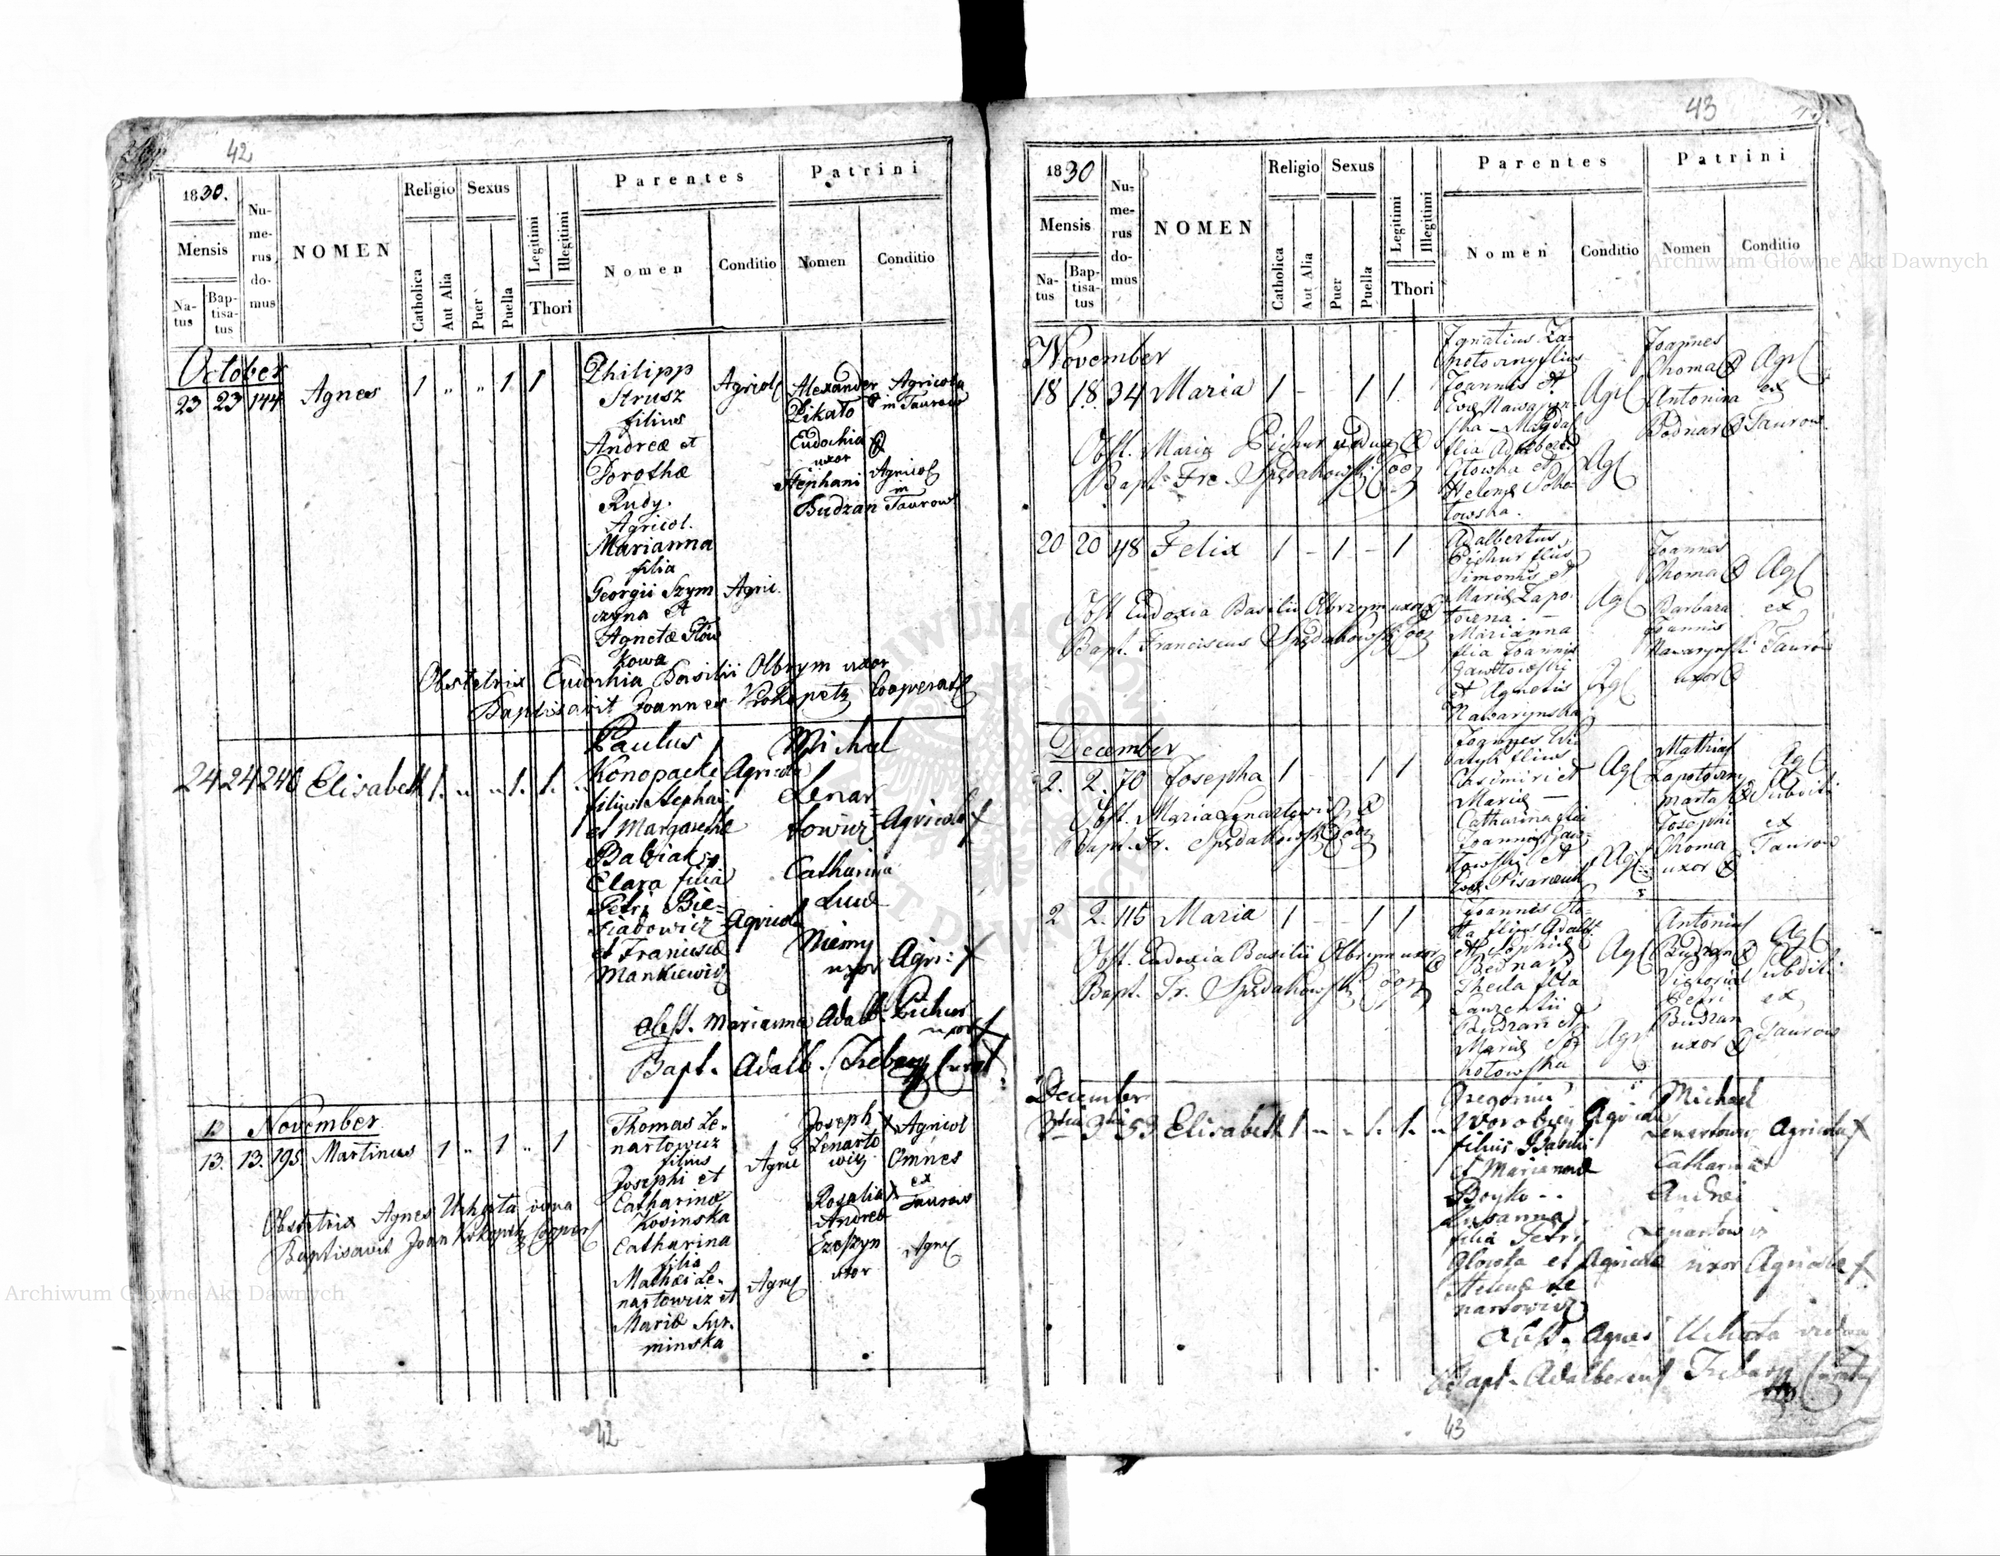 42
1830.
Mensis
Natus
Baptisatus
Numerus domus
NOMEN
Religio
Catholica
Aut Alia
Sexus
Puer
Puella
Legitimi
Illegitimi
Thori
Parentes
Nomen
Conditio
Patrini
Nomen
Conditio
October
23 23 144 Agnes 1 " " 1 1
Philipp
Strusz
filius
Andreæ et
Dorothæ
Rudy.
Agricol.
Marianna
filia
Georgii Szym
czyna et
Agnetæ Słow
kowa
Agricol
Agric.
Alexander
Pikato
Eudochia
uxor
Stephani
Budzan
Agricola
in Taurow
Agricol
in
Taurow
Obstetrix Eudochia Basilii Olbrym uxor
Baptisavit Joannes Prokopetz Cooperat
24 24 246 Elisabeth 1. " " 1. 1. "
Paulus
Konopacki
filius Stephani
et Margarethæ
Babiak
Clara filia
Petri Bie-
siadowicz
et Franciscæ
Mankiewicz
Agricola
Agricola
Michael
Lenar
towicz
Catharina
Lucæ
Niemy
uxor
Agricola +
Agri: +
Obst. Marianna Adalb. Pichur
uxor +
Bapt. Adalb. Trebacz Curat
1. November
13. 13. 195. Martinus 1 " 1 " 1
Thomas Le-
nartowicz
filius
Josephi et
Catharinæ
Kosinska
Catharina
filia
Mathæi Le-
nartowicz et
Mariæ Sur-
minska
Agric
Agric
Joseph +
Lenarto
wicz
Rosalia +
Andreæ
uxor
Agricol
Omnes
ex
Taurow
Agric
Obstetrix Agnes Uchata vidua
Baptisavit Joan Prokopetz Cooper
42
43
1830
Mensis
Natus
Baptisatus
Numerus domus
NOMEN
Religio
Catholica
Aut Alia
Sexus
Puer
Puella
Legitimi
Illegitimi
Thori
Parentes
Nomen
Conditio
Patrini
Nomen
Conditio
November
18 18 34 Maria 1 - 1 1
Ignatius Za-
potoczny filius
Joannis et
Evæ Nawaryn-
ska - Magda
filia Adalberti
Głowka et
Helenæ Soko-
łowska.
Agr
Agr
Joannes
Choma
Antonina
Bodnar
Agr
ex
Taurow
Obst. Maria Pichur vidua
Bapt. Fr. Spędakowski Coop
20 20 48 Felix 1 - 1 - 1
Adalbertus
Pichur filius
Simonis et
Mariæ Zapo-
toczna. -
Marianna
filia Joannis
Gawłowski
et Agnetis
Nawarynska
Agr
Agr
Joannes
Choma
Barbara
Joannis
Nawarynski
uxor
Agr
ex
Taurow
Obst. Eudoxia Basilii Olbrzym uxor
Bapt. Franciscus Spędakowski Coop
December
2. 2. 70 Josepha 1 - 1 1
Joannes
filius
Casimiri et
Mariæ -
Catharina filia
Joannis Gaw-
łowski et
Evæ Pisarczuk
Agr
Agr
Mathias
Zapotoczny
Marta
Josephi
Choma
uxor
Agr
Subditi
ex
Taurow
Obst. Maria Lenartowicz
Bapt. Fr. Spędakowski Coop
2 2. 115 Maria 1 - - 1 1
Joannes
filius Adalb
et Sophiæ
Bednarz
Thecla filia
Laurentii
Budzan et
Mariæ So-
kołowska
Agr
Agr
Antonius
Budzan
Victoria
Petri
Budzan
uxor
Agr
Subditi
ex
Taurow
Obst. Eudoxia Basilii Olbrzym uxor
Bapt. Fr. Spędakowski Coop
December
3tia 3tia 53 Elisabeth 1 " " 1. 1. "
Gregorius
Worobiey
filius Basilii
et Mariannæ
Boyko - -
Susanna
filia Petri
Głowka et
Helenæ Le
nartowicz
Agricola
Agricolæ
Michael
Lenartowicz
Catharina
Andrei
Lenartowicz
uxor
Agricola +
Agricolæ +
Obst. Agnes Uchata vidua
Bapt. Adalbertus Trebacz Curatus
43
Archiwum Główne Akt Dawnych
Archiwum Główne Akt Dawnych